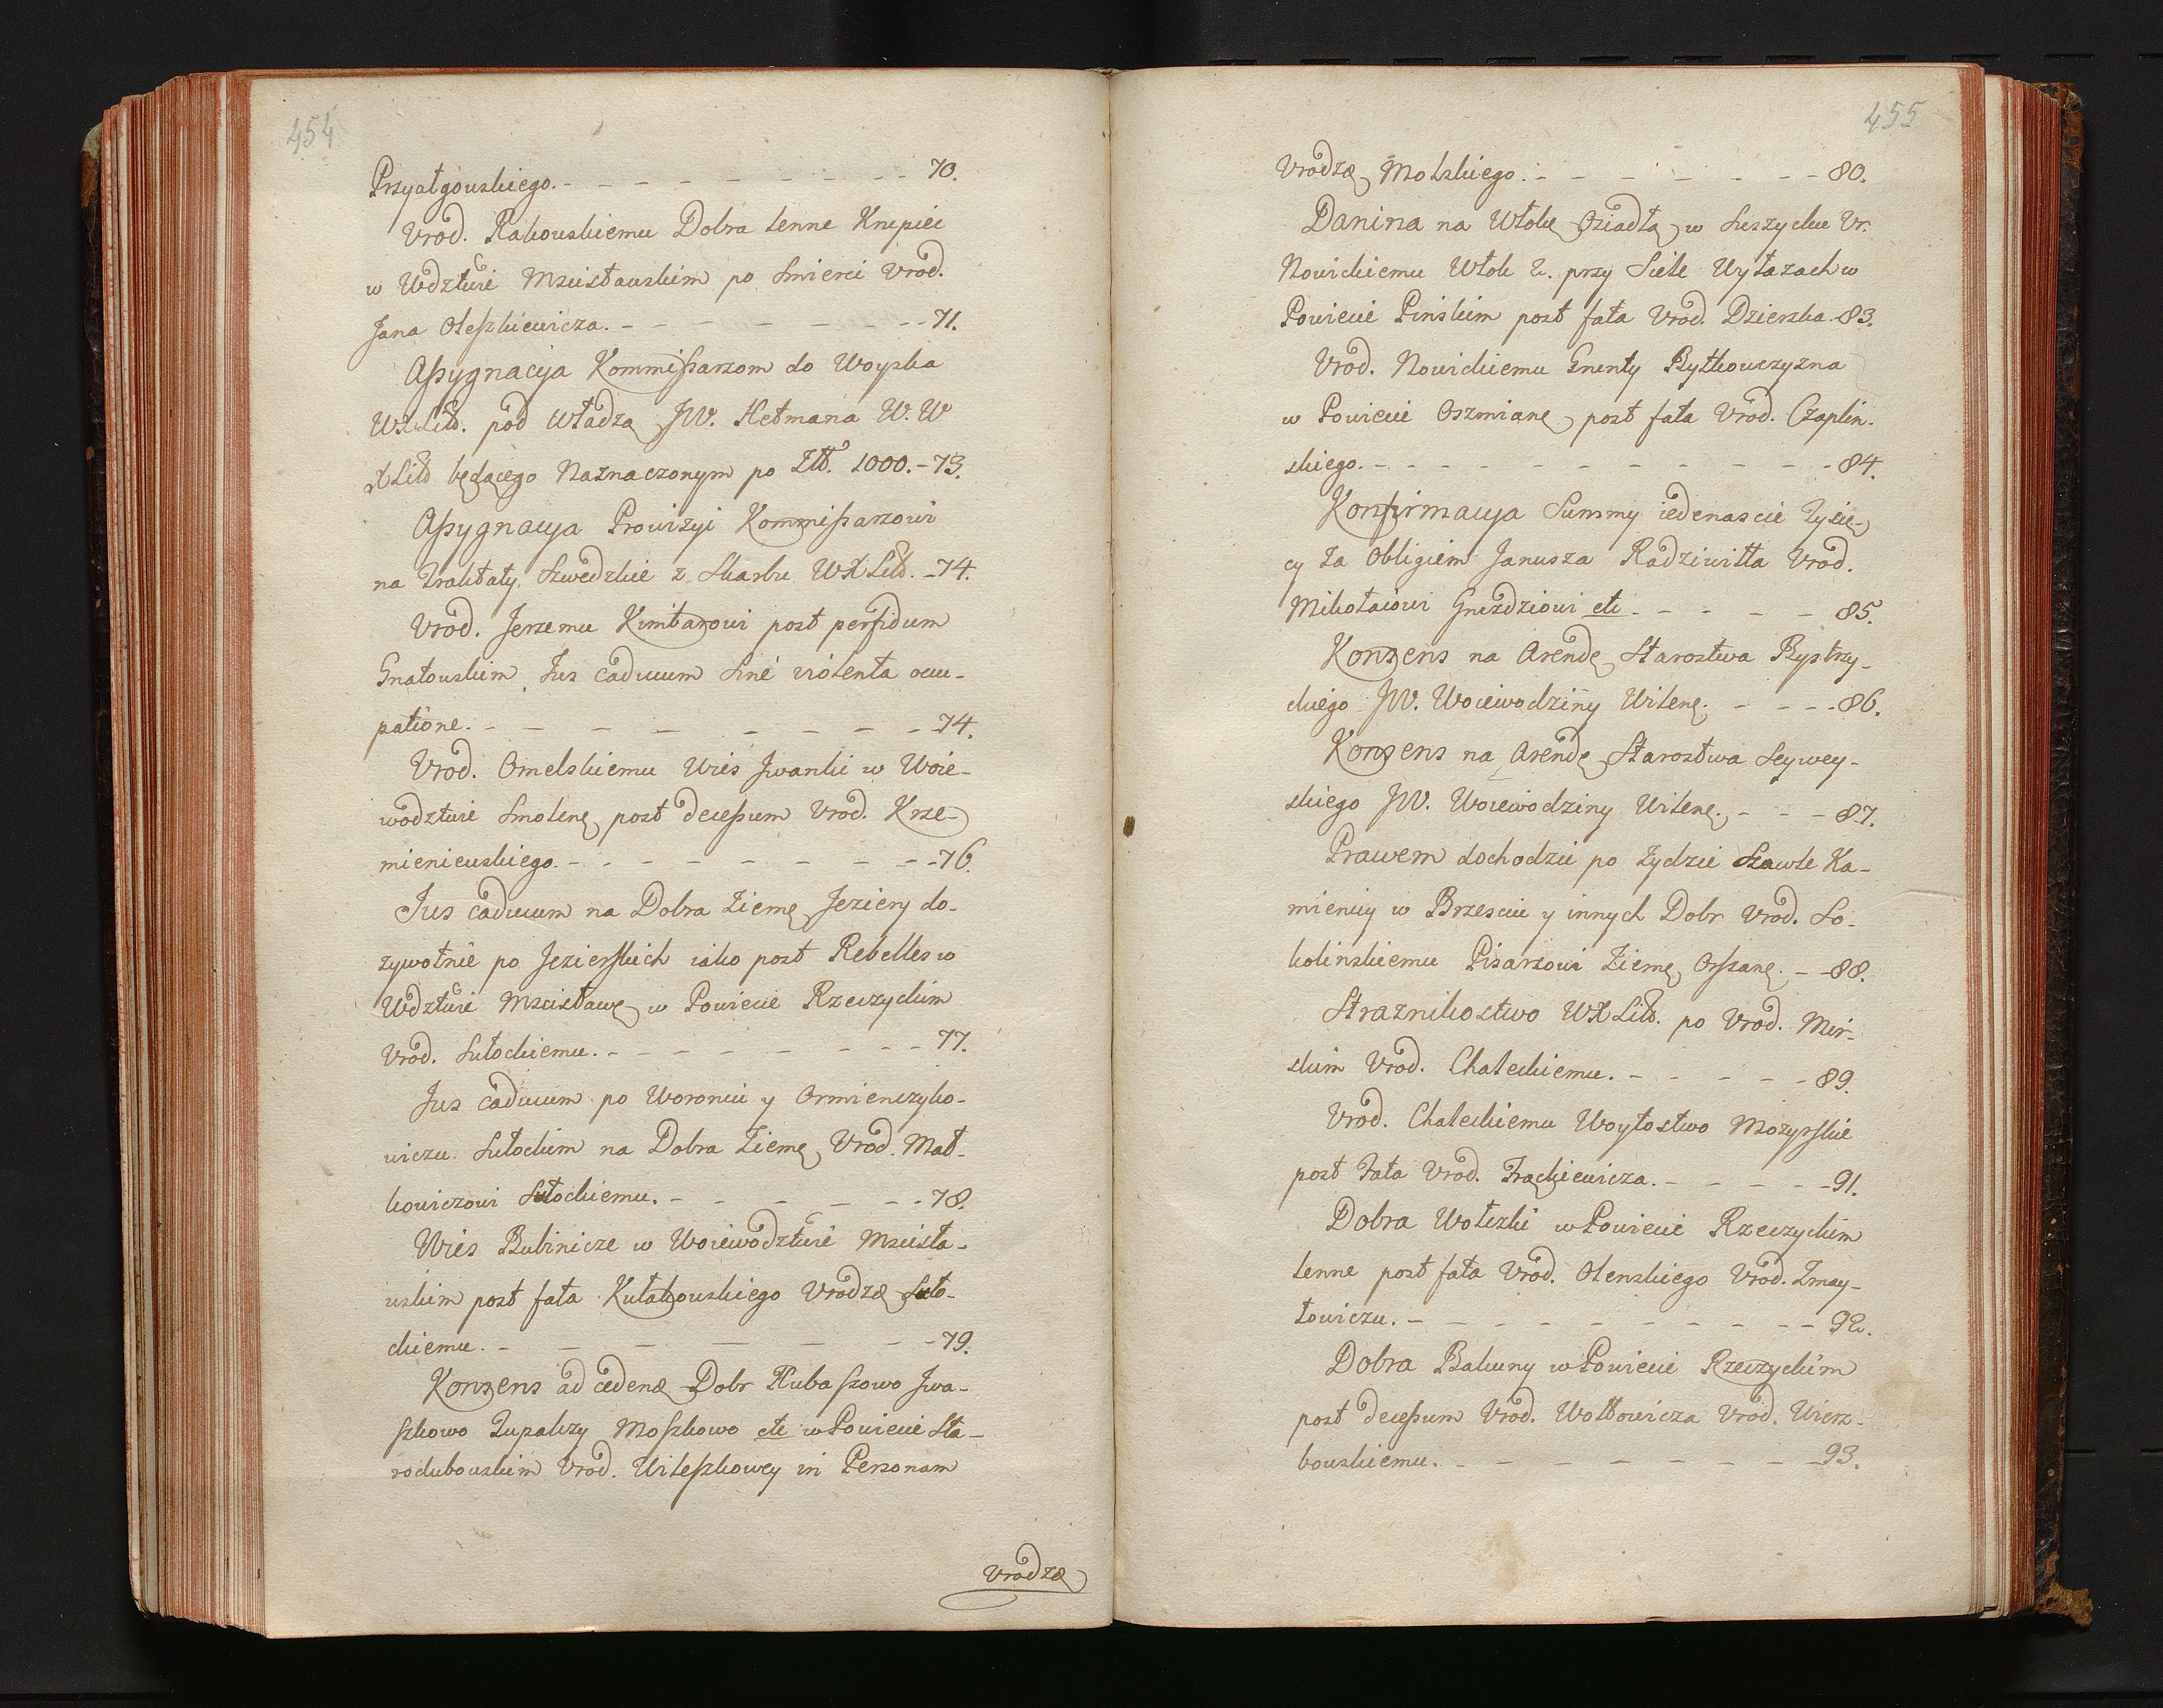 454
Przyałgowskiego. - - - - - - - - - 70.
Urod. Rakowskiemu Dobra lenne Knepiec
w Wdztwie Mscisławskim po Smierci Urod.
Jana Oleszkiewicza. - - - - - - - - 71.
Assygnacyja Kommissarzom do Woyska
WXLitt. pod władzą JW. Hetmana W. W
XLitt będącego Naznaczonym po Złł. 1000. - 73.
Assygnacya Prowizyi Kommissarzowi
na Traktaty Szwedzkie z Skarbu WXLitt. - 74.
Urod. Jerzemu Kimbarowi post perfidum
Gnatowskim Jus caducum sine violenta occu-
patione. - - - - - - - - 74.
Urod. Omelskiemu Wies Jwanki w Woie-
wodztwie Smolenę post decessum Urod. Krze-
mieniewskiego. - - - - - - - - 76.
Jus caducum na Dobra Ziemę Jeziery do-
zywotnie po Jezierskich iako post Rebelles w
Wdztwie Mscisławę w Powiecie Rzeczyckim
Urod. Sułockiemu. - - - - - - - - 77.
Jus caducum po Woroncu y Ormienczyko-
wiczu Sułockim na Dobra Ziemę Urod. Mał-
kowiczowi Sułockiemu. - - - - - - 78.
Wies Bubinicze w Woiewodztwie Mscisła-
wskim post fata Kułakowskiego Urodzę Suło-
ckiemu. - - - - - - - 79.
Konsens ad cedenę Dobr Kubaszowo Jwa-
szkowo Zupalszy Moszkowo etc w Powiecie Sta-
rodubowskim Urod. Witeszkowey in Personam
Urodzę
455
Urodzę Molskiego. - - - - - - - 80.
Danina na Włokę Osiadłą w Siszycku Ur.
Nowickiemu Włok 2. przy Siele Wyłazach w
Powiecie Pinskim post fata Urod. Dzierska. 83.
Urod. Nowickiemu Grunty Bytkowczyzna
w Powiecie Oszmianę post fata Urod. Czaplin-
skiego. - - - - - - - - - - 84.
Konfirmacya Summy iedenascie Tysię-
cy Za Obligiem Janusza Radziwiłła Urod.
Mikołaiowi Gniazdziowi etc - - - - - 85.
Konsens na Arendę Starostwa Bystrzy-
ckiego JW. Woiewodziny Wilenę. - - - - 86.
Konsens na Arendę Starostwa Seywey-
skiego JW. Woiewodziny Wilenę. - - - 87.
Prawem dochodzic po Zydzie Szawle Ka-
mienicy w Brzesciu y innych Dobr Urod. So-
kolinskiemu Pisarzowi Ziemę Orszanę. - - 88.
Straznikostwo WXLitt. po Urod. Mir-
skim Urod. Chaleckiemu. - - - - - 89.
Urod. Chaleckiemu Woytostwo Mozyrskie
post Fata Urod. Frąckiewicza. - - - - - 91.
Dobra Wołczki w Powiecie Rzeczyckim
lenne post fata Urod. Olenskiego Urod. Zmay-
łowiczu. - - - - - - - - - - - 92.
Dobra Bakuny w Powiecie Rzeczyckim
post decessum Urod. Wołłowicza Urod. Wierz-
bowskiemu. - - - - - - - - 93.